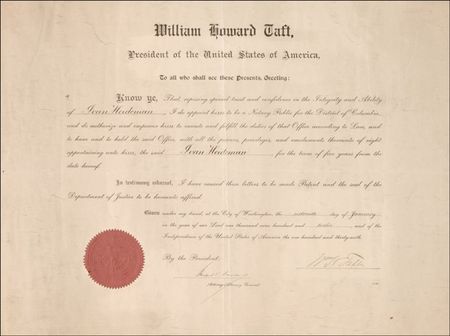 William Howard Taft,
President of the United States of America,
To all who shall see these Presents, Greeting:
Know ye, That, reposing special trust and confidence in the Integrity and Ability
of Ivan Heideman, I do appoint him to be a Notary Public for the District of Columbia,
and do authorize and empower him to execute and fulfill the duties of that Office according to Law, and
to have and to hold the said Office, with all the powers, privileges, and emoluments thereto of right
appertaining unto him, the said Ivan Heideman, for the term of five years from the
date hereof.
In testimony whereof, I have caused these letters to be made Patent and the seal of the
Department of Justice to be hereunto affixed.
Given under my hand, at the City of Washington, the day of January,
in the year of our Lord one thousand nine hundred and twelve, and of the
Independence of the United States of America the one hundred and thirty-sixth.
By the President:
Attorney General